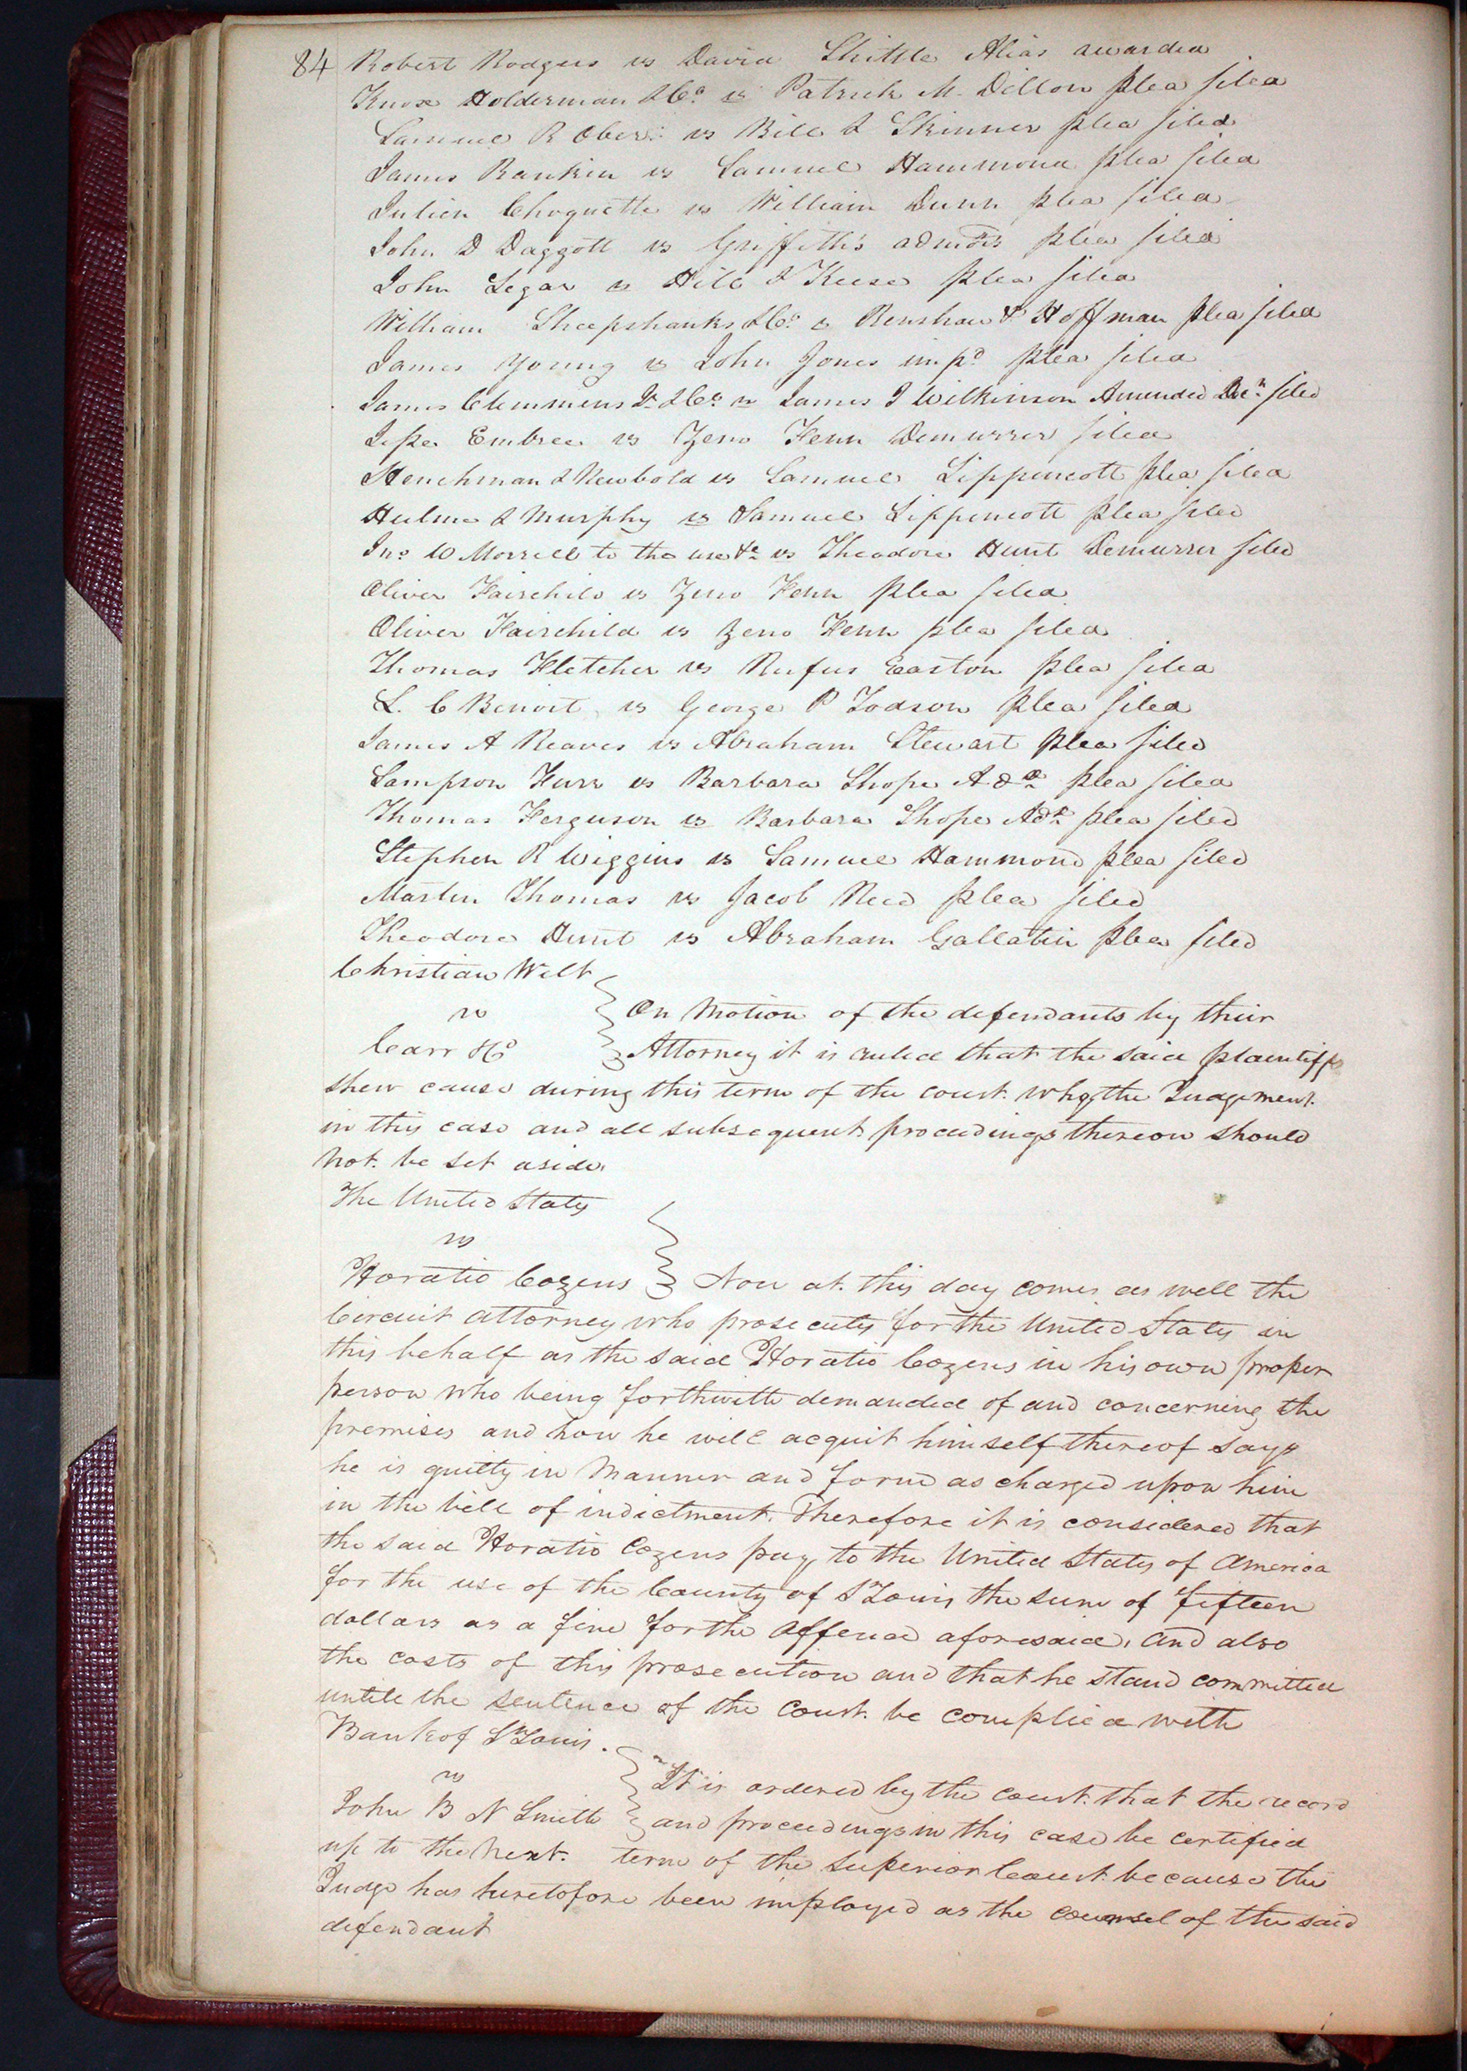 84 Robert Rodgers vs David Shittle Alias awarded
Knox Holderman & Co vs Patrick M. Dillon plea filed
Samuel R Ober vs Bill & Skinner plea filed
James Rankin vs Samuel Hammond plea filed
Julien Choquette vs William Dunn plea filed
John D Daggott vs Griffith's admors plea filed
John Segar vs Hill & Keese plea filed
William Sheepshanks & Co vs Renshaw & Hoffman plea filed
James Young vs John Jones impd plea filed
James Clemmens Jr & Co vs James I Wilkinson Amended Decn filed
Jesse Embree vs Zeno Fenn Demurrer filed
Henchman & Newbold vs Samuel Lippencott plea filed
Hulme & Murphy vs Samuel Lippencott plea filed
Jno W Morrell to the use &c vs Theodore Hunt Demurrer filed
Oliver Fairchild vs Zeno Fenn plea filed
Oliver Fairchild vs Zeno Fenn plea filed
Thomas Fletcher vs Rufus Easton plea filed
L. C Benoit vs George P Todson plea filed
James A Reaves vs Abraham Stewart plea filed
Sampson Furr vs Barbara Shope Adx plea filed
Thomas Ferguson vs Barbara Shope Adx plea filed
Stephen R Wiggins vs Samuel Hammond plea filed
Martin Thomas vs Jacob Reed plea filed
Theodore Hunt vs Abraham Gallatin plea filed
Christian Wilt
vs On Motion of the defendants by their
Carr & Co Attorney it is ruled that the said plaintiffs
shew cause during this term of the court why the Judgement
in this case and all subsequent proceedings thereon should
not be set aside.
The United States
vs
Horatio Cozens Now at this day comes as well the
Circuit attorney who prosecutes for the United States in
this behalf as the said Horatio Cozens in his own proper
person who being forthwith demanded of and concerning the
premises and how he will acquit himself thereof says
he is guilty in Manner and form as charged upon him
in the bill of indictment. Therefore it is considered that
the said Horatio Cozens pay to the United States of America
for the use of the County of St Louis the sum of fifteen
dollars as a fine for the offence aforesaid, and also
the costs of this prosecution and that he stand committed
untill the sentence of the court be complied with
Bank of St Louis.
vs It is ordered by the court that the record
John B N Smith and proceedings in this case be certified
up to the next term of the Superior Court because the
Judge has heretofore been imployed as the counsel of the said
defendant